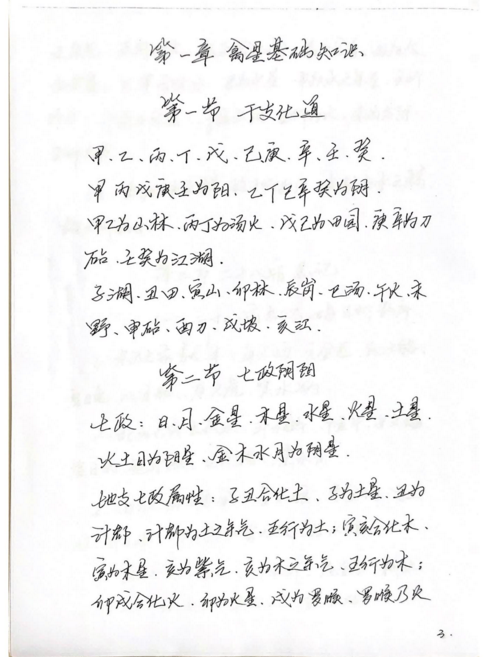 第一章 禽星基础知识
第一节 干支化道
甲、乙、丙、丁、戊、己、庚、辛、壬、癸.
甲丙戊庚壬为阳、乙丁己辛癸为阴.
甲乙为山林、丙丁为汤火、戊己为田园、庚辛为刀
砧、壬癸为江湖.
子湖、丑田、寅山、卯林、辰岗、巳汤、午火、未
野、申砧、酉刀、戌坡、亥江.
第二节 七政阴阳
七政：日、月、金星、木星、水星、火星、土星.
火土日为阳星、金木水月为阴星.
地支七政属性：子丑合化土、子为土星、丑为
计都、计都为土之余气、五行为土；寅亥合化木、
寅为木星、亥为紫气、亥为木之余气、五行为木；
卯戌合化火、卯为火星、戌为罗睺、罗睺乃火
3.